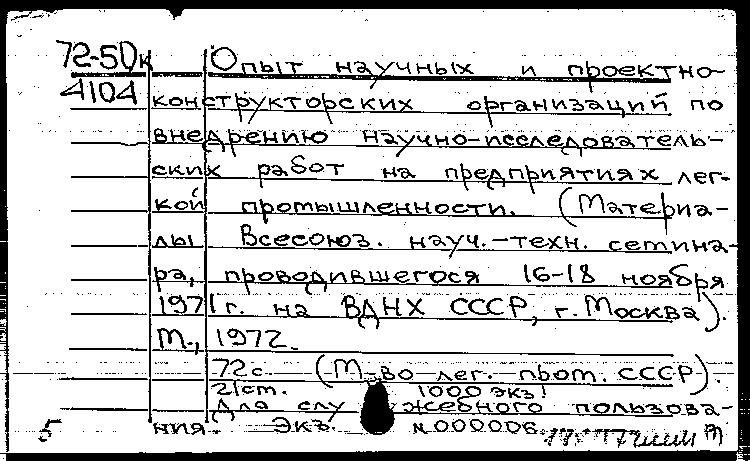 72-50к Опыт научных и проектно-
4104 конструкторских организаций по
внедрению научно-исследователь-
ских работ на предприятиях лег-
кой промышленности. (Материа-
лы Всесоюз. науч.-техн. семина-
ра, проводившегося 16-18 ноября
1971 г. на ВДНХ СССР, г. Москва).
М., 1972.
72 с. (М-во лег. пром. СССР).
21 ст. 1000 экз!
Для служебного пользова-
5 ния. Экз. №000006